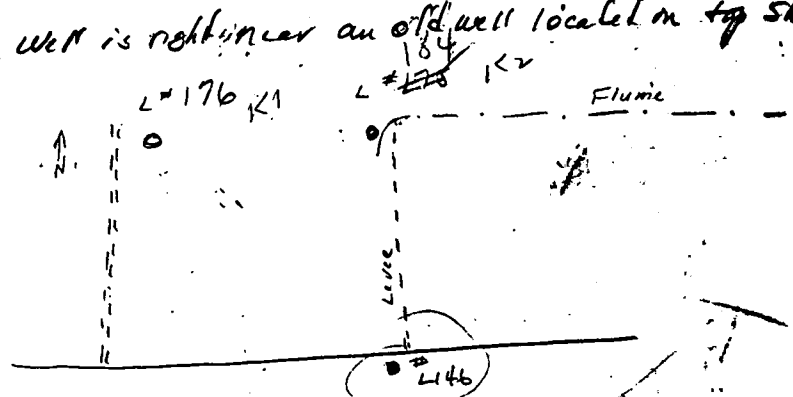 well is right near an old well located on top
184
L# 176 K1
L# K2
Flume
N
Levee
# L146